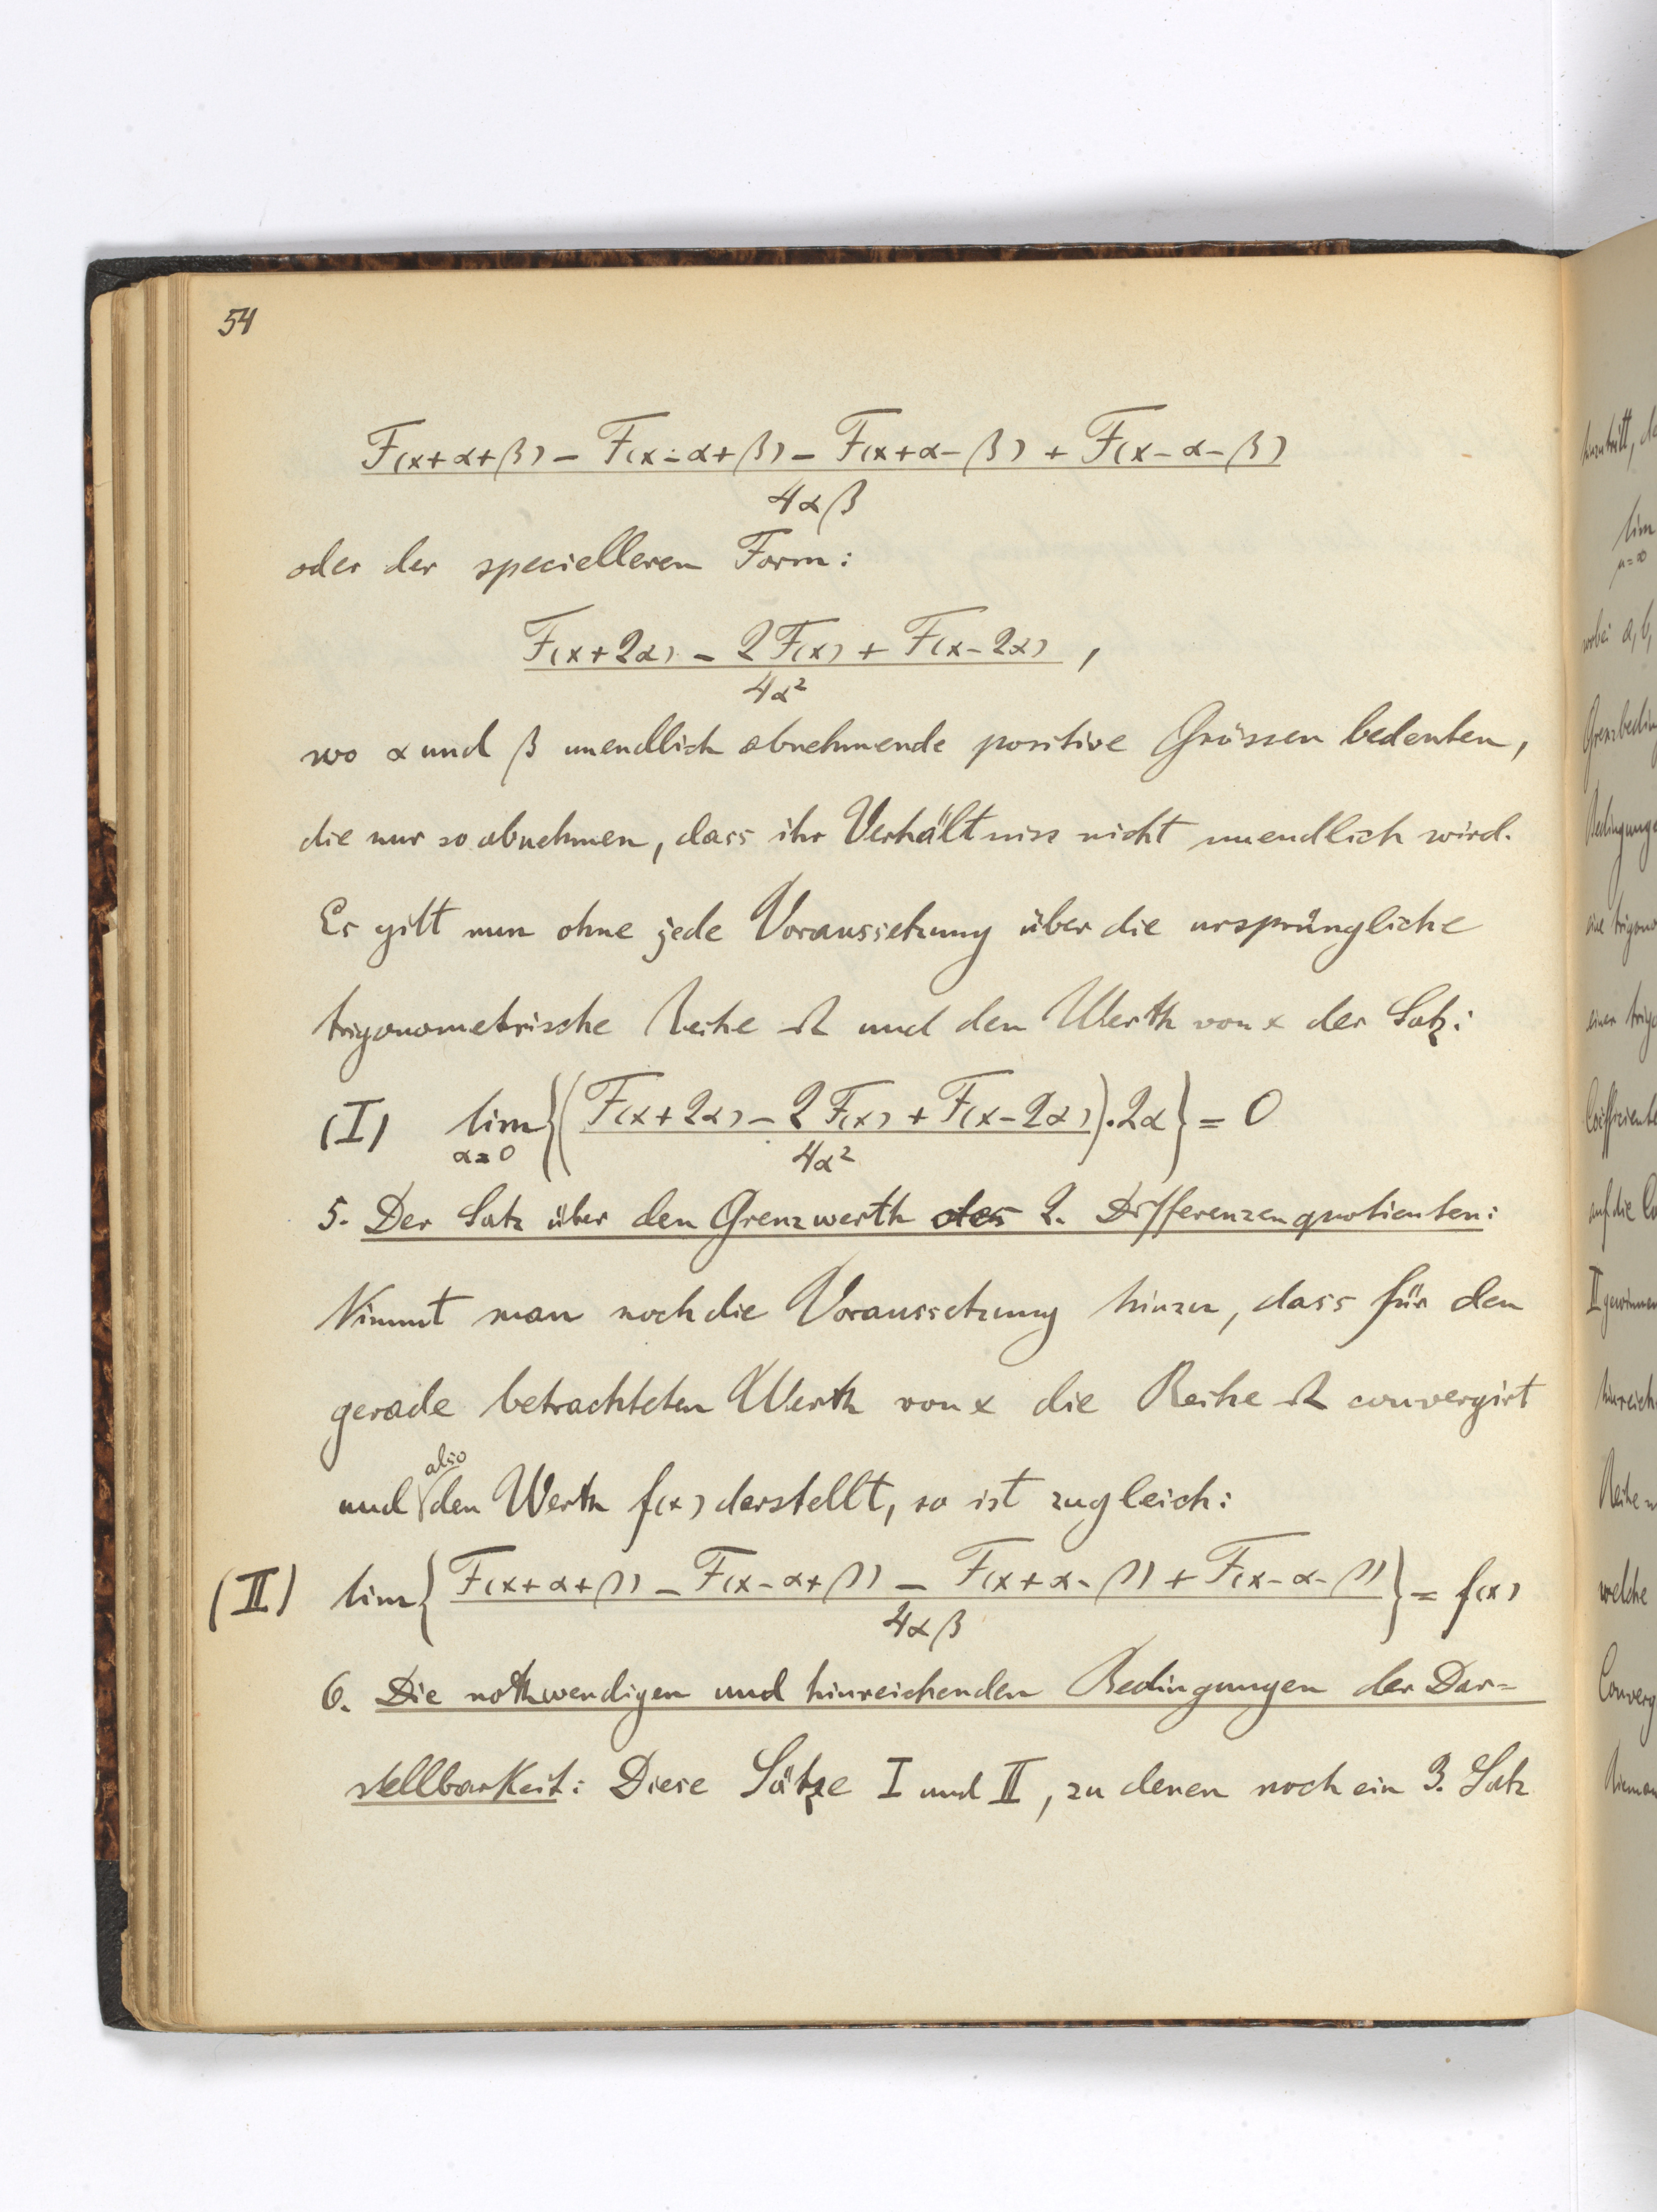 54
F(x+α+β) - F(x-α+β) - F(x+α-β) + F(x-α-β)
4αβ
oder der specielleren Form:
F(x+2α) - 2F(x) + F(x-2α) ,
4α²
wo α und β unendlich abnehmende positive Grössen bedeuten,
die nur so abnehmen, dass ihr Verhältniss nicht unendlich wird.
Es gilt nun ohne jede Voraussetzung über die ursprüngliche
trigonometrische Reihe Ω und den Werth von x der Satz:
(I) lim {(F(x+2α) - 2F(x) + F(x-2α)).2α} = 0
α=0 4α²
5. Der Satz über den Grenzwerth des 2. Differenzenquotienten:
Nimmt man noch die Voraussetzung hinzu, dass für den
gerade betrachteten Werth von x die Reihe Ω convergirt
also
und den Werth f(x) darstellt, so ist zugleich:
(II) lim { F(x+α+β) - F(x-α+β) - F(x+α-β) + F(x-α-β) } = f(x)
4αβ
6. Die nothwendigen und hinreichenden Bedingungen der Dar=
stellbarkeit: Diese Sätze I und II, zu denen noch ein 3. Satz
lim
μ=∞
II
welche